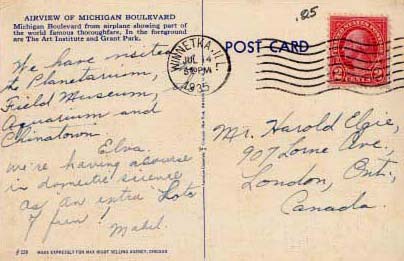 AIRVIEW OF MICHIGAN BOULEVARD
Michigan Boulevard from airplane showing part of
the world famous thoroughfare. In the foreground
are The Art Institute and Grant Park.
We have visited
the Planetarium,
Field Museum,
Aquarium and
Chinatown.
Elva.
We're having a course
in domestic science
as an extra. Lots
of fun!
Mabel.
# 228 MADE EXPRESSLY FOR MAX RIGOT SELLING AGENCY, CHICAGO
.05
POST CARD
WINNETKA, ILL.
JUL 14
PM
1935
UNITED STATES POSTAGE
2 CENTS 2
Mr. Harold Elgie,
907 Lorne Ave.,
London, Ont.,
Canada.